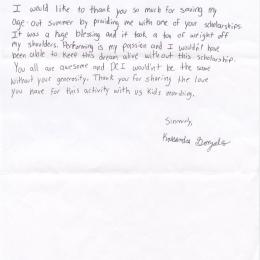 I would like to thank you so much for saving my
age-out summer by providing me with one of your scholarships.
It was a huge blessing and it took a ton of weight off
my shoulders. Performing is my passion and I wouldn't have
been able to keep this dream alive without this scholarship.
You all are awesome and DCI wouldn't be the same
without your generosity. Thank you for sharing the love
you have for this activity with us kids marching.
Sincerely,